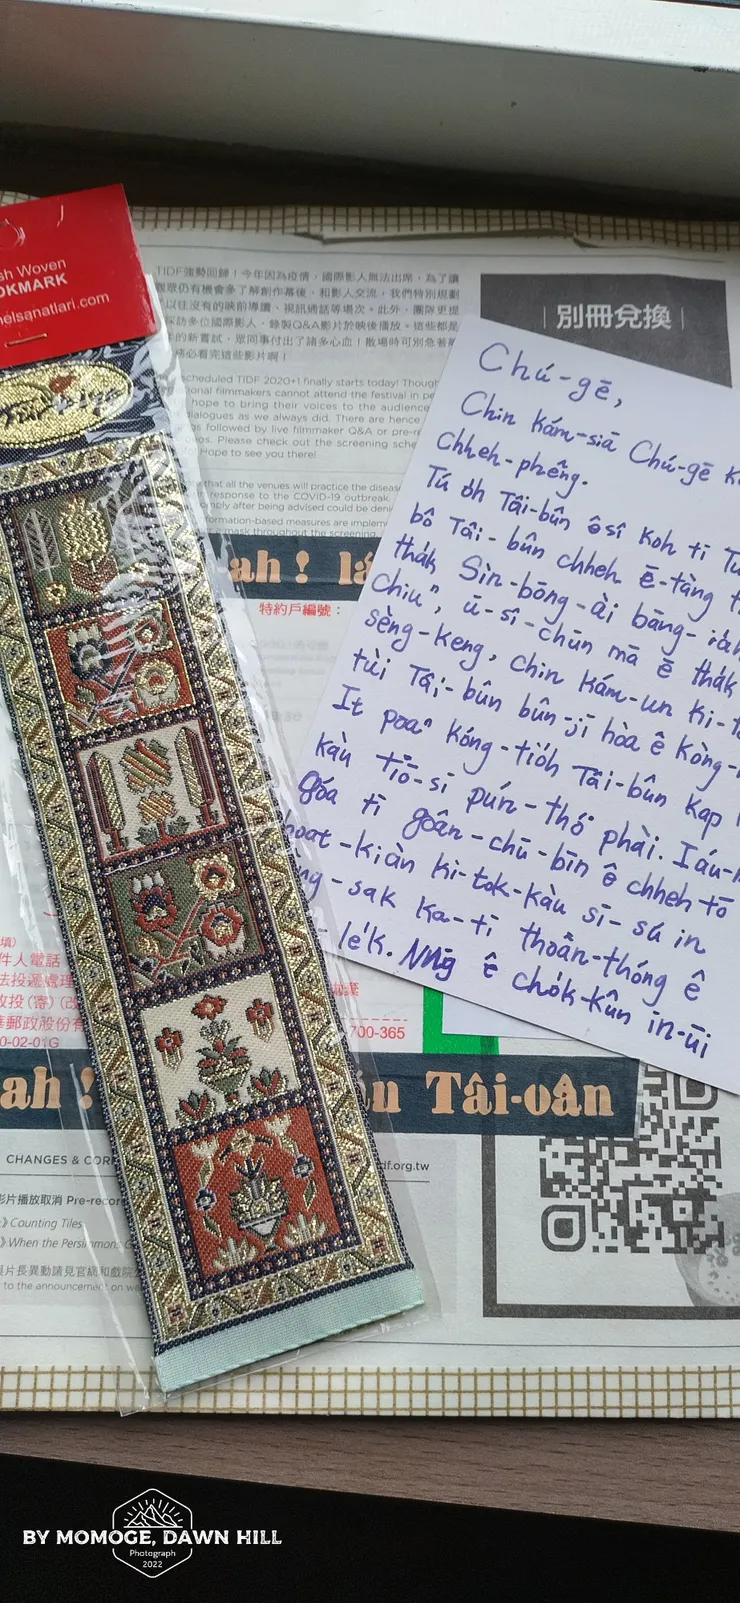 sh Woven
OKMARK
nelsanatlari.com
TIDF強勢回歸！今年因為疫情，國際影人無法出席，為了讓
眾仍有機會多了解創作幕後、和影人交流，我們特別規劃
以往沒有的映前導讀、視訊通話等場次。此外，團隊更提
採訪多位國際影人、錄製Q&A影片於映後播放。這些都是
的新嘗試，眾同事付出了諸多心血！散場時可別急著
務必看完這些影片啊！
scheduled TIDF 2020+1 finally starts today! Though
onal filmmakers cannot attend the festival in pe
hope to bring their voices to the audience
dialogues as we always did. There are hence
gs followed by live filmmaker Q&A or pre-re
eos. Please check out the screening sche
! Hope to see you there!
that all the venues will practice the disease
response to the COVID-19 outbreak.
mply after being advised could be deni
formation-based measures are implem
mask throughout the screening.
｜別冊兌換｜
Chú-gē,
Chin Kám-siā Chú-gē K
Chheh-phêng.
Tú óh Tâi-bûn ê sî Koh tī Tu
bô Tâi-bûn chheh ē-tàng t
thák Sin-bōng-ài bāng-iáh
Chiuⁿ, ū-sî-chūn mā ē thák
sèng-keng, chin Kám-un Ki-t
tùi Tâi-bûn bûn-jī hòa ê Kòng-
It poaⁿ Kóng-tióh Tâi-bûn Kap
Kàu tiō-sī pún-thó͘ phài. Iáu-
Góa tī goân-chū-bîn ê chheh-tō
hoat-kiàn Ki-tok-kàu sī-sú in
ng-sak Ka-tī thoân-thóng ê
-lék. Nn̄g ê chók-kûn in-ūi
ah! lá
特約戶編號：
填)
件人電話
法投遞處理
改投(寄)(改
華郵政股份有
0-02-01G
700-365
ah!
án Tâi-oân
CHANGES & COR
df.org.tw
影片播放取消 Pre-recor
》Counting Tiles
》When the Persimmons G
片長異動請見官網和戲院
to the announcement on we
BY MOMOGE, DAWN HILL
Photograph
2022